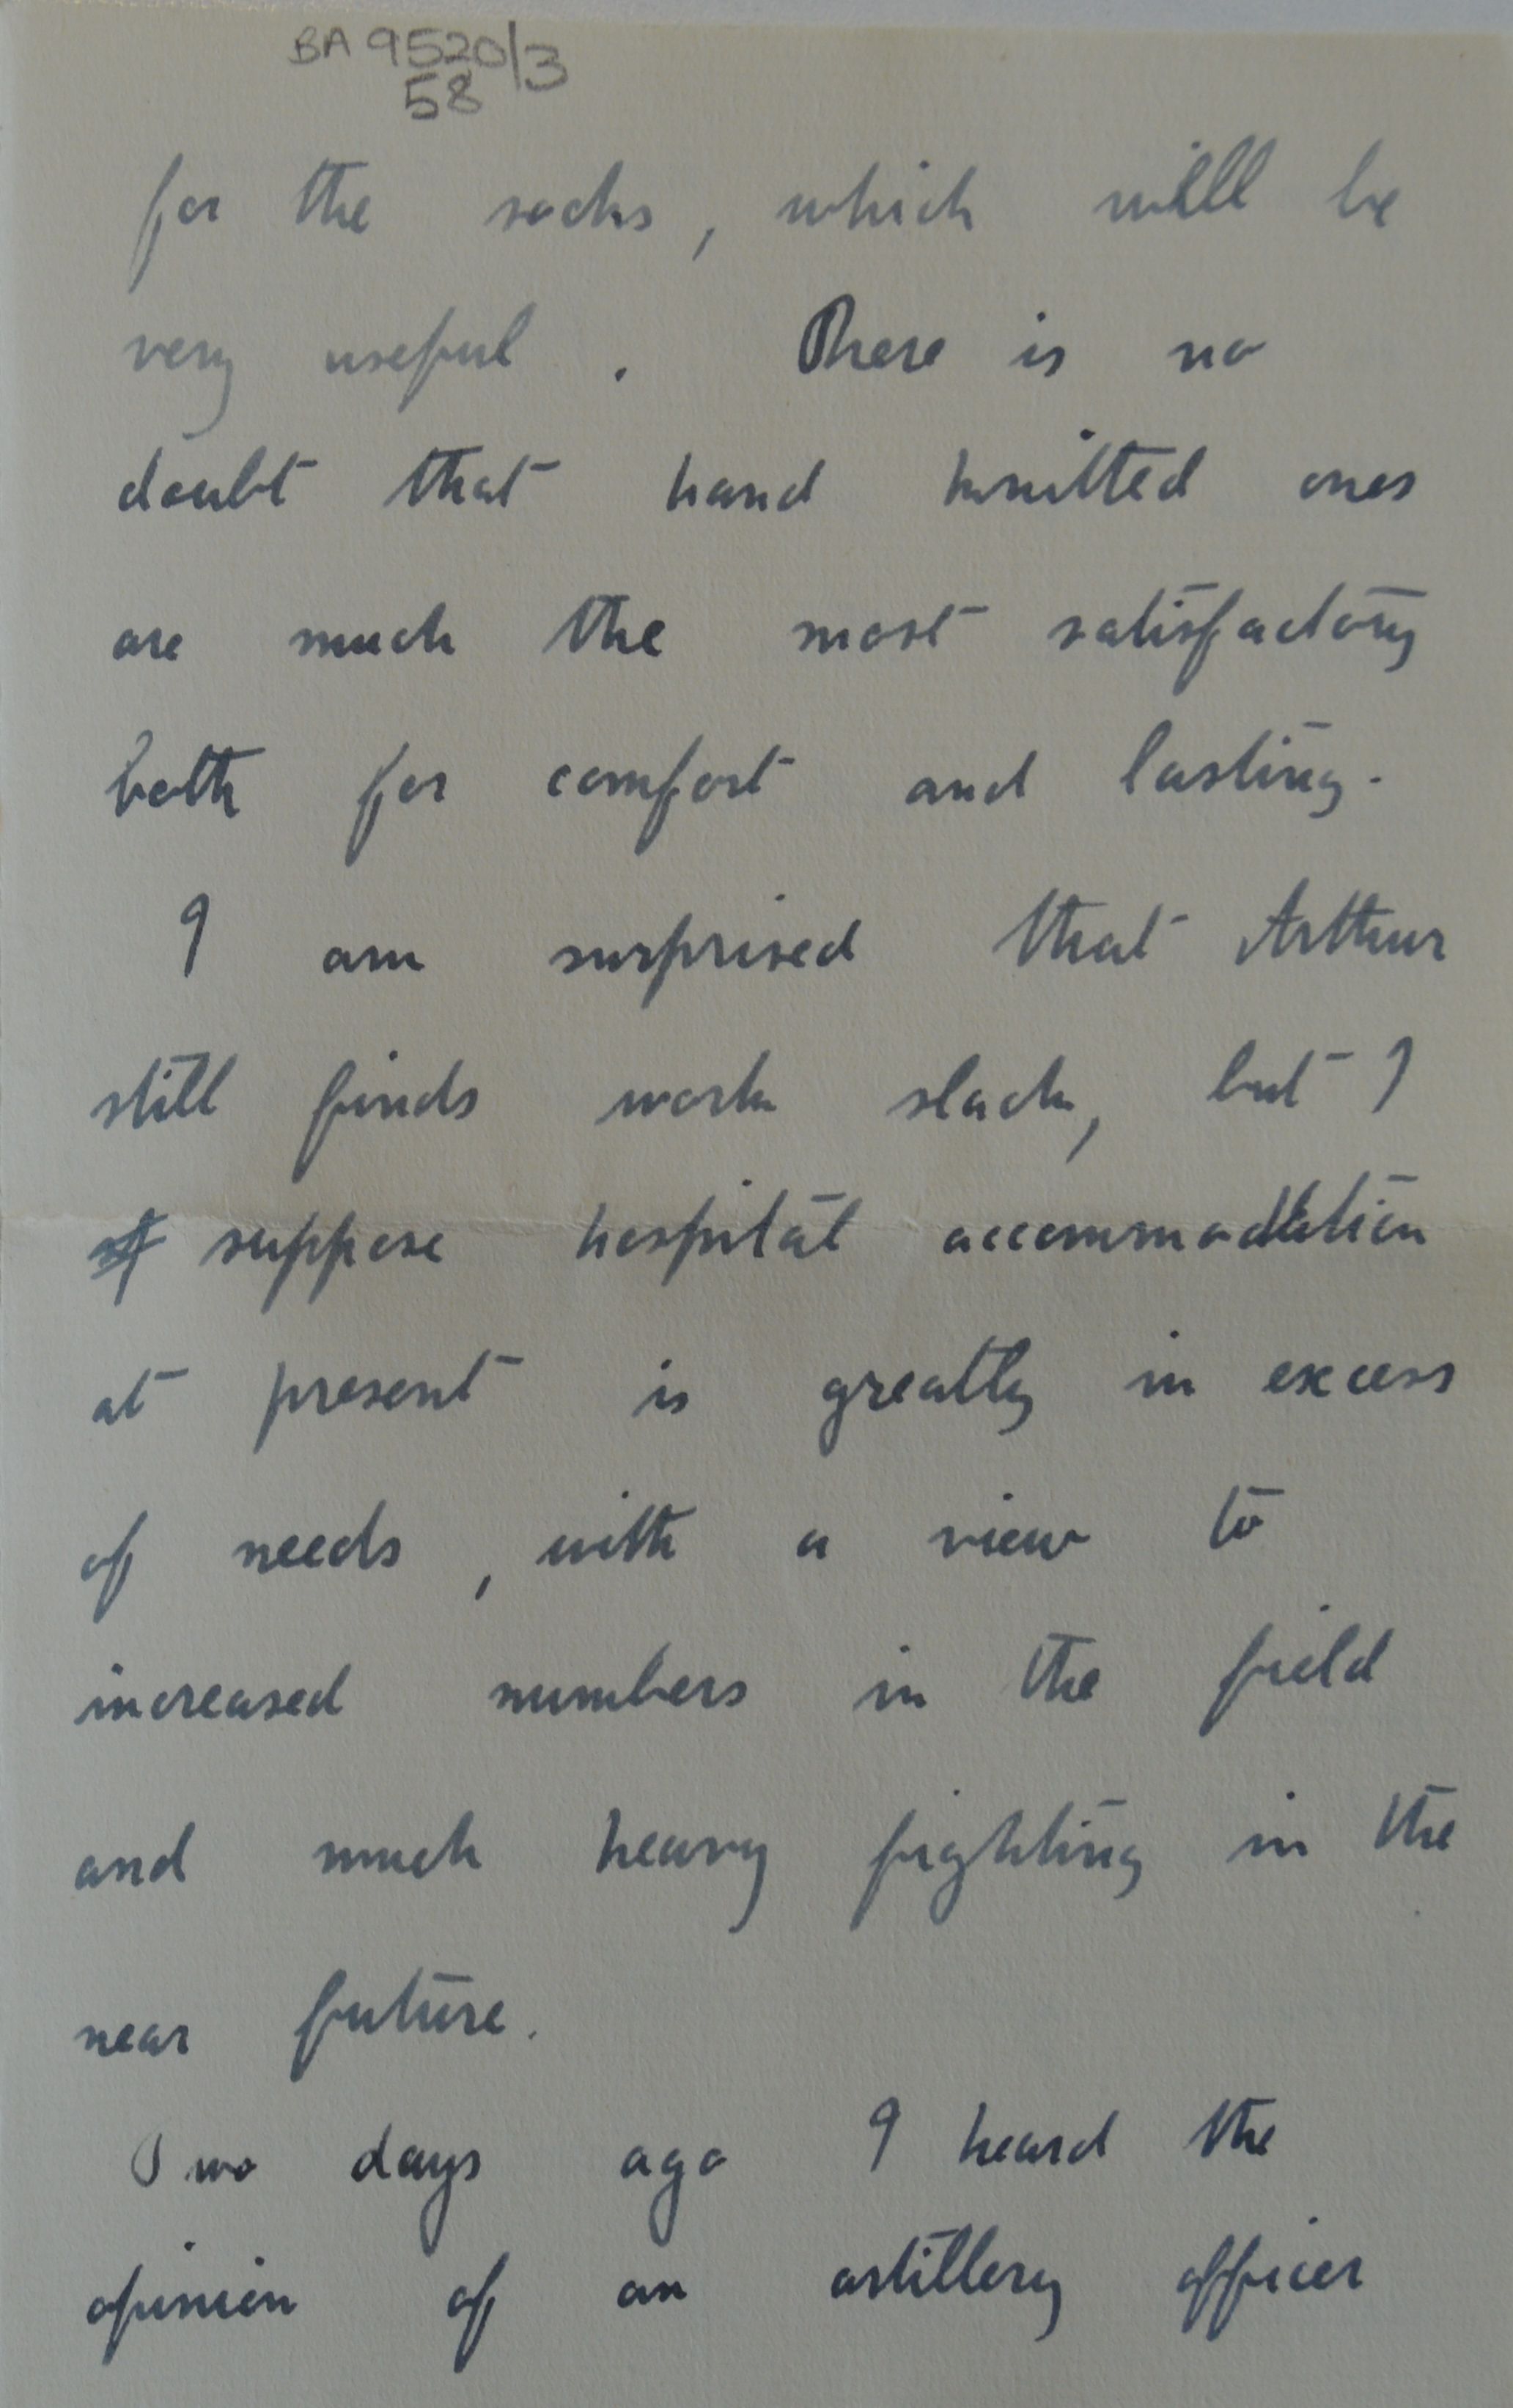 BA 9520/3
58
for the socks, which will be
very useful. There is no
doubt that hand knitted ones
are much the most satisfactory
both for comfort and lasting.
I am surprised that Arthur
still finds work slack, but I
suppose hospital accommodation
at present is greatly in excess
of needs, with a view to
increased numbers in the field
and much heavy fighting in the
near future.
Two days ago I heard the
opinion of an artillery officer